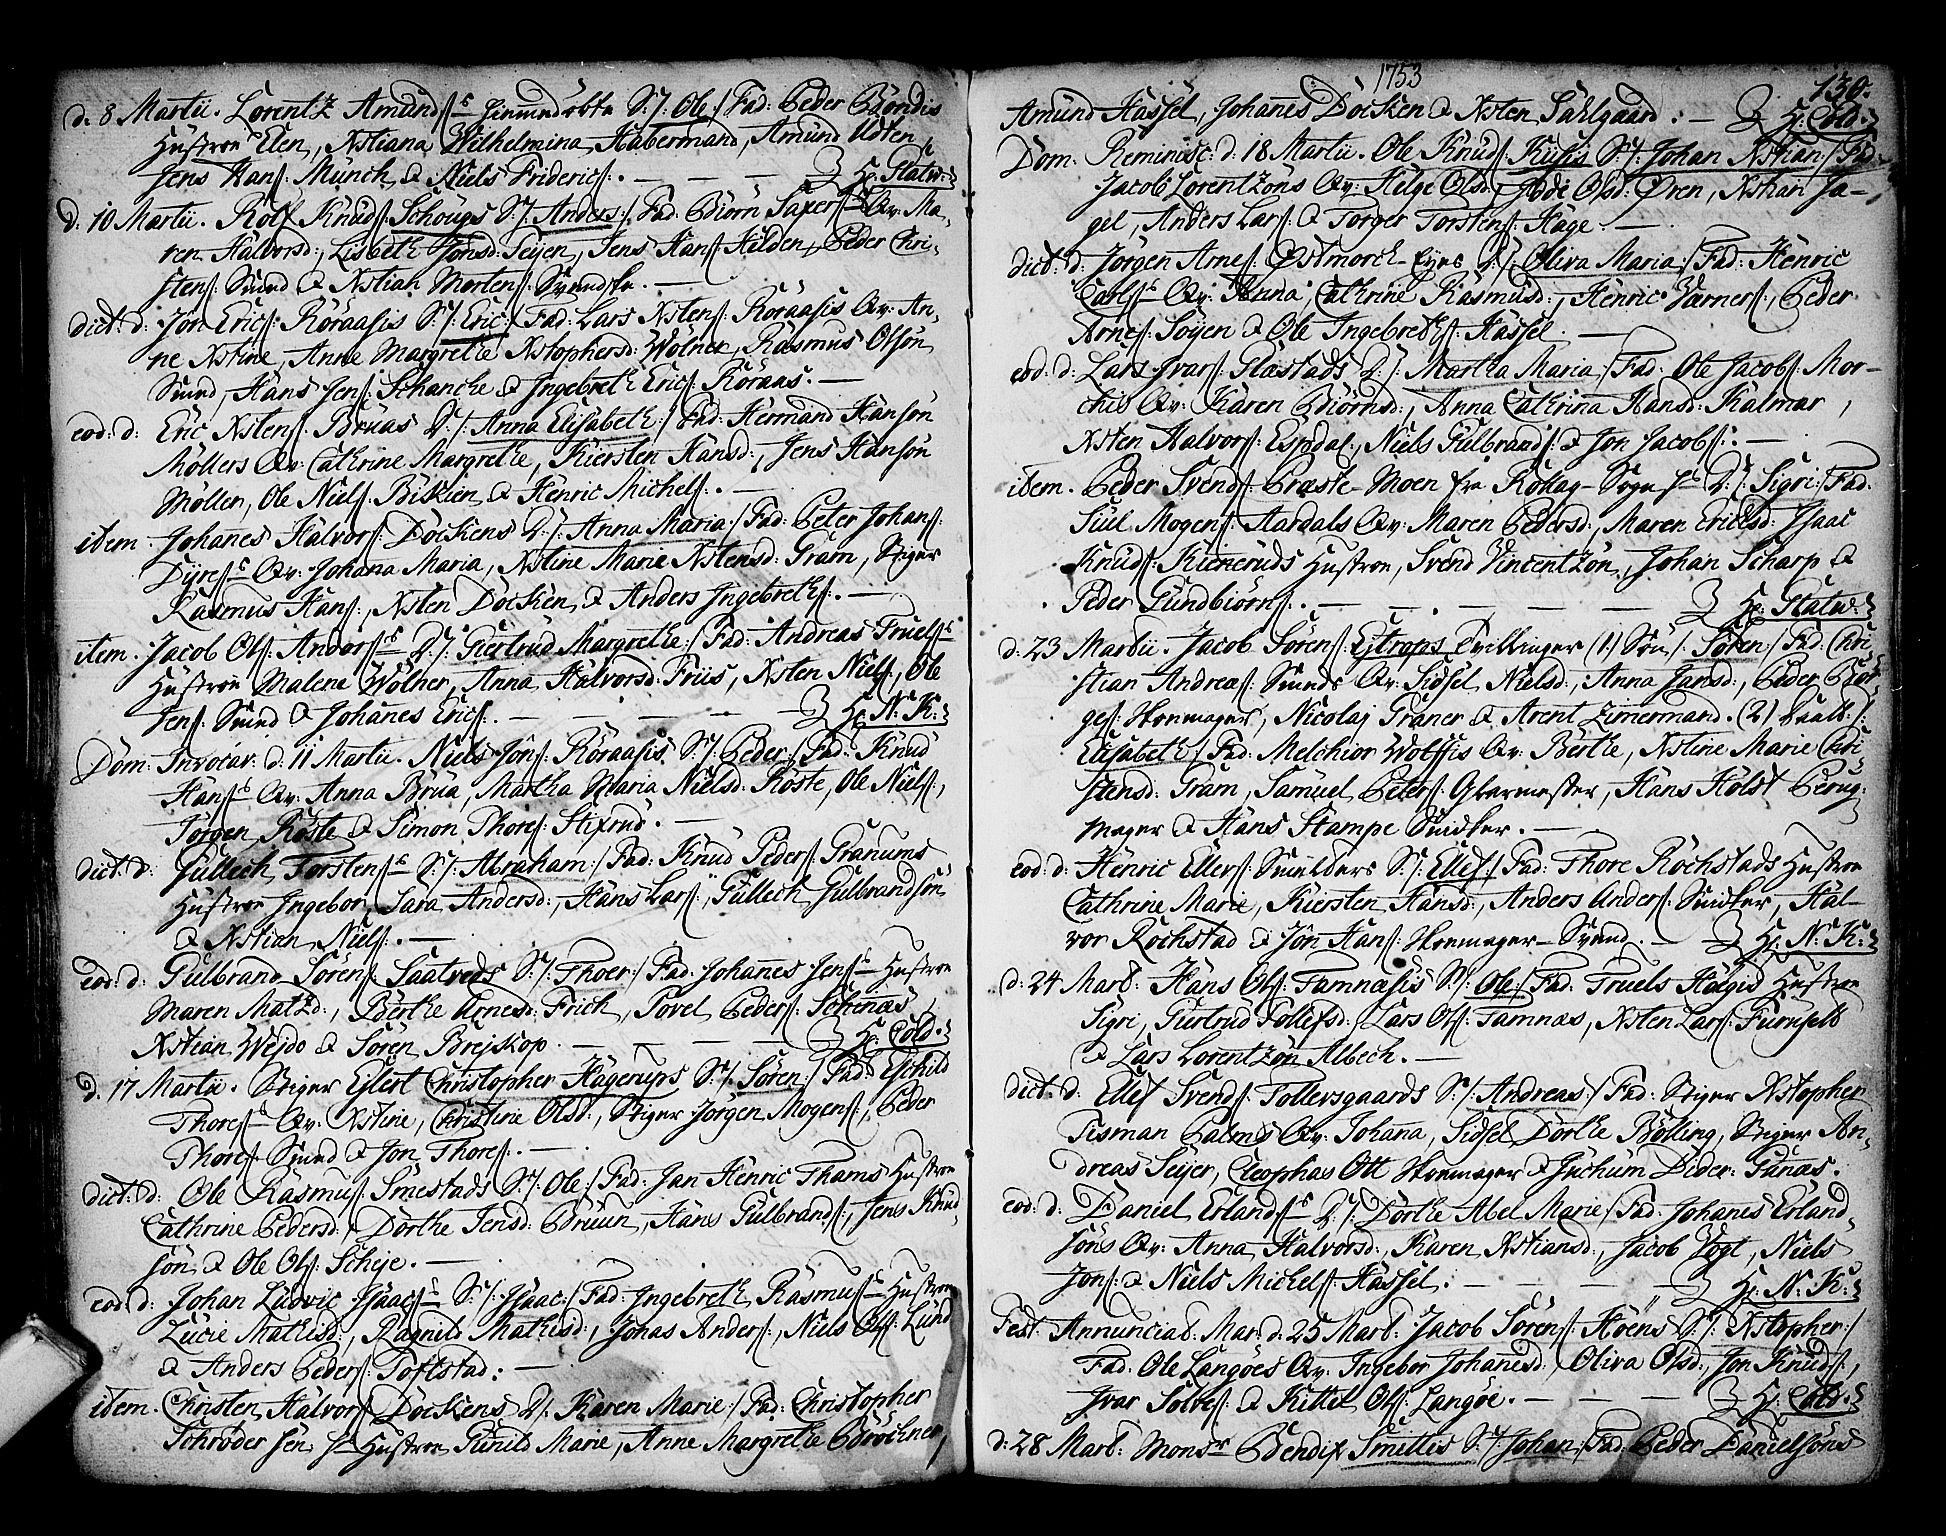 d. 8 Martii. Lorentz Amunds: S:/: Ole:/ Fad: Peder
Hustroe Elen, Xstiana Wilhelmina Habermand, Amund Udten
Jens Hans: Münch & Niels Frideric: — — — H: Statw:
d: 10 Martii. Rolf Knuds: Schougs S:/: Anders:/ Fad: Biörn Qv: Ma-
ren Halvorsd:, Lisbeth Jonsd: Seyen, Jens Hans: Hilden, Peder Chri-
stens: Smed & Xstian Mortens: Svendske. —
dict: d: Jon Erics: Röraasis S:/: Eric:/ Fad: Lars Xstens: Röraasis Qv: An-
ne Xstine, Anne Margrethe Xstophersd: Wölner, Rasmus Olsön
Smed, Hans Jens: Schancke & Ingebreth Erics: Röraas. —
eod: d: Eric Xstens: Bruas D:/: Anna Elisabeth:/ Fad: Hermand Hansön
Möllers Qv: Cathrine Margrethe, Kiersten Hansd:, Jens Hansön
Möllen, Ole Niels: Biskien & Henric Michels: . —
item. Johanes Halvors: Döckens D:/: Anna Maria:/ Fad: Peter Johans:
Dyres: Qv: Johana Maria, Xstine Marie Xstensd: Gram, Stiger
Rasmus Hans:, Xsten Döcken & Anders Ingebreths: . —
item. Jacob Ols: Andors: D:/: Giertrud Margrethe:/ Fad: Andreas Truels:
Hustroe Malene Wölner, Anna Halvorsd: Friis, Xsten Niels:, Ole
Jens: Smed & Johanes Erics: . — — — H: N: K:
Dom: Invocav: d. 11 Martii. Niels Jons: Röraasis S:/: Peder:/ Fad: Knud
Hans: Qv: Anna Brua, Martha Maria Nielsd: Röste, Ole Niels:,
Jörgen Röste & Simon Thores: Stixrud. —
dict: d: Gullech Torstens: S:/: Abraham:/ Fad: Knud Peders: Granums
Hustroe Ingebor, Sara Andersd:, Hans Lars:, Gullech Gulbrandsön
& Xstian Niels: . —
eod: d: Gulbrand Sörens: Saatveds S:/: Thoer:/ Fad: Johannes Jens: Hustroe
Maren Matzd:, Börthe Arnesd: Frich, Povel Peders: Schinäs
Xstian Wejdo & Sören Brejskop. — — — H: Cold:
d: 17 Martii. Stiger Ejlert Christopher Hagerups S:/: Sören:/ Fad: Eschild
Thores: Qv: Xstine, Christine Olsd:, Stiger Jörgen Mogens:, Peder
Thores: Smed & Jon Thores: . —
dict: d: Ole Rasmus: Smestads S:/: Ole:/ Fad: Jan Henric Thams Hustroe
Cathrine Pedersd:, Dorthe Jensd: Bruun, Hans Gulbrands:, Jens Knud-
sön & Ole Ols: Scheje. —
eod: d: Johan Ludvic Isaacs: S:/: Isaac:/ Fad: Ingebreth Rasmus: Hustroe
Lucie Mathisd:, Ragnild Mathisd:, Jonas Anders:, Niels Ols: Lund
& Anders Peders: Toftstad: —
item. Christen Halvors: Döckens D:/: Karen Marie:/ Fad: Christopher
Schröder sen: Hustroe Gunild Marie, Anne Margrethe Bröckner,
1753
130.
Amund Hassel, Johanes Döcken & Xsten Sahlgaard: — H: Cold:
Dom. Reminisc: d. 18 Martii. Ole Knuds: Kusis S:/: Johan Xstian:/ Fad:
Jacob Lorentzöns Qv: Helge Olsd:, Jode Olsd: Ören, Xstian Ja-
gel, Anders Lars: & Torger Torstens: Hage. —
dict: d: Jörgen Arnes: Östmorck D:/: Oliva Maria:/ Fad: Henric
Carls: Qv: Anna Cathrine Rasmusd:, Henric Værners:, Peder
Arnes: Söyen & Ole Ingebreths: Hassel. —
eod: d: Lars Ivars: Glæstads D:/: Martha Maria:/ Fad: Ole Jacobs: Mor-
chis Qv: Karen Biörnsd:, Anna Cathrina Hansd: Kalmar,
Xsten Halvors: Espdal, Niels Gulbrands: & Jon Jacobs: —
item. Peder Svends: Præste-Moen fra Rollag-Sogn D:/: Sigri:/ Fad:
Siul Mogens: Aardals Qv: Maren Pedersd:, Maren Ericsd: Isaac
Knuds: Kieneruds Hustroe, Svend Vincentzön, Johan Scharp &
Peder Gundbiörns: . — — — H: Statw:
d: 23 Martii. Jacob Sörens: Ejtrops Tvillinger (1) Sön:/: Sören:/ Fad: Chri-
stian Andreas: Smeds Qv: Sidsel Nielsd:, Anna Jansd:, Peder Bör-
ges: Skoemager, Nicolaj Graner & Arent Zimermand. (2) Daatt:/:
Elisabeth:/ Fad: Melchior Wolffis Qv: Berthe, Xstine Marie Chri-
stensd: Gram, Samuel Peters: Glarmester, Hans Holst Perug-
mager & Hans Stampe Snidker. —
eod: d: Henric Ellers: Smilders S:/: Ellef:/ Fad: Thore Rochstads Hustroe
Cathrine Marie, Kiersten Hansd:, Anders Anders: Snidker, Hal-
vor Rochstad & Jon Hans: Skoemager-Svend. — H: N: K:
d: 24 Mart: Hans Ols: Tamnæsis S:/: Ole:/ Fad: Truels Helgis Hustroe
Sigri, Giertrud Tollefsd: Lars Ols: Tamnæs, Xsten Lars:
& Lars Lorentzön Albech. —
dict: d: Ellef Svends: Tollevsgaards S:/: Andreas:/ Fad: Stiger Xstopher
Tisman Palms Qv: Johana, Sidsel Dorthe Bölling, Stiger An-
dreas Seyer, Cleophas Ott Skoemager & Juchum Dider: Ganæs.
eod: d: Daniel Erlands: D:/: Dorthe Abel Marie:/ Fad: Johanes Erland-
söns Qv: Anna Halvorsd:, Karen Xstiansd:, Jacob Vogt, Niels
Jons: & Niels Michels: Hassel: — — — H: N: K:
Fest: Annunciat: Mar: d: 25 Mart: Jacob Sörens: Höens S:/: Xstopher:/
Fad: Ole Langöes Qv: Ingebor Johanesd: Oliva Olsd:, Jon Knuds:,
Ivar Solves: & Kittel Ols: Langöe. — — — H: Cold:
d: 28 Mart: Monsr Bendix Smittis S:/: Johan:/ Fad: Peder Danielsöns